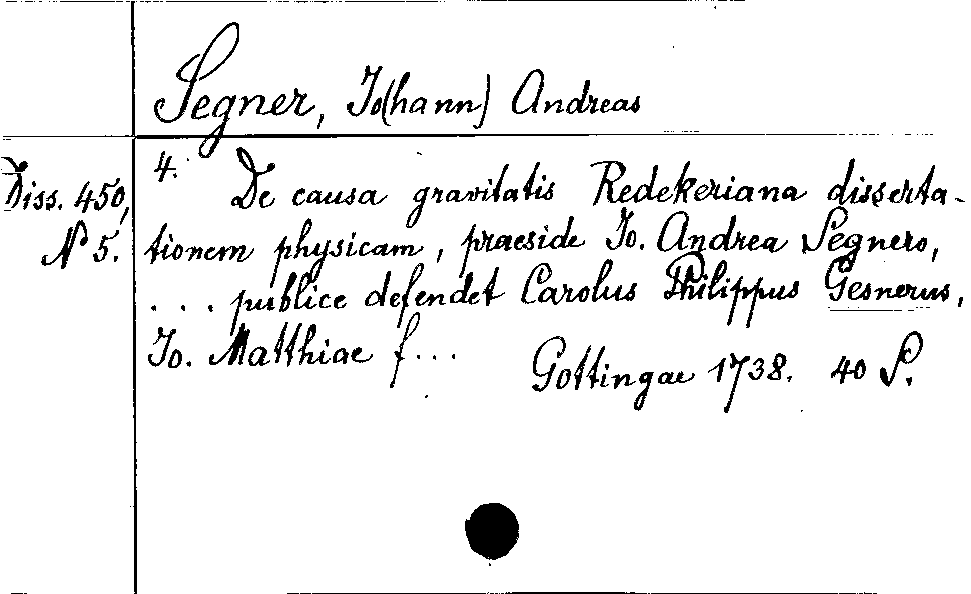 Segner, Jo(hann) Andreas
Diss. 450,
N 5.
4. De causa gravitatis Redekeriana disserta-
tionem physicam, praeside Jo. Andrea Segnero,
... publice defendet Carolus Philippus Gesnerus,
Jo. Matthiae f...
Gottingae 1738. 40 S.